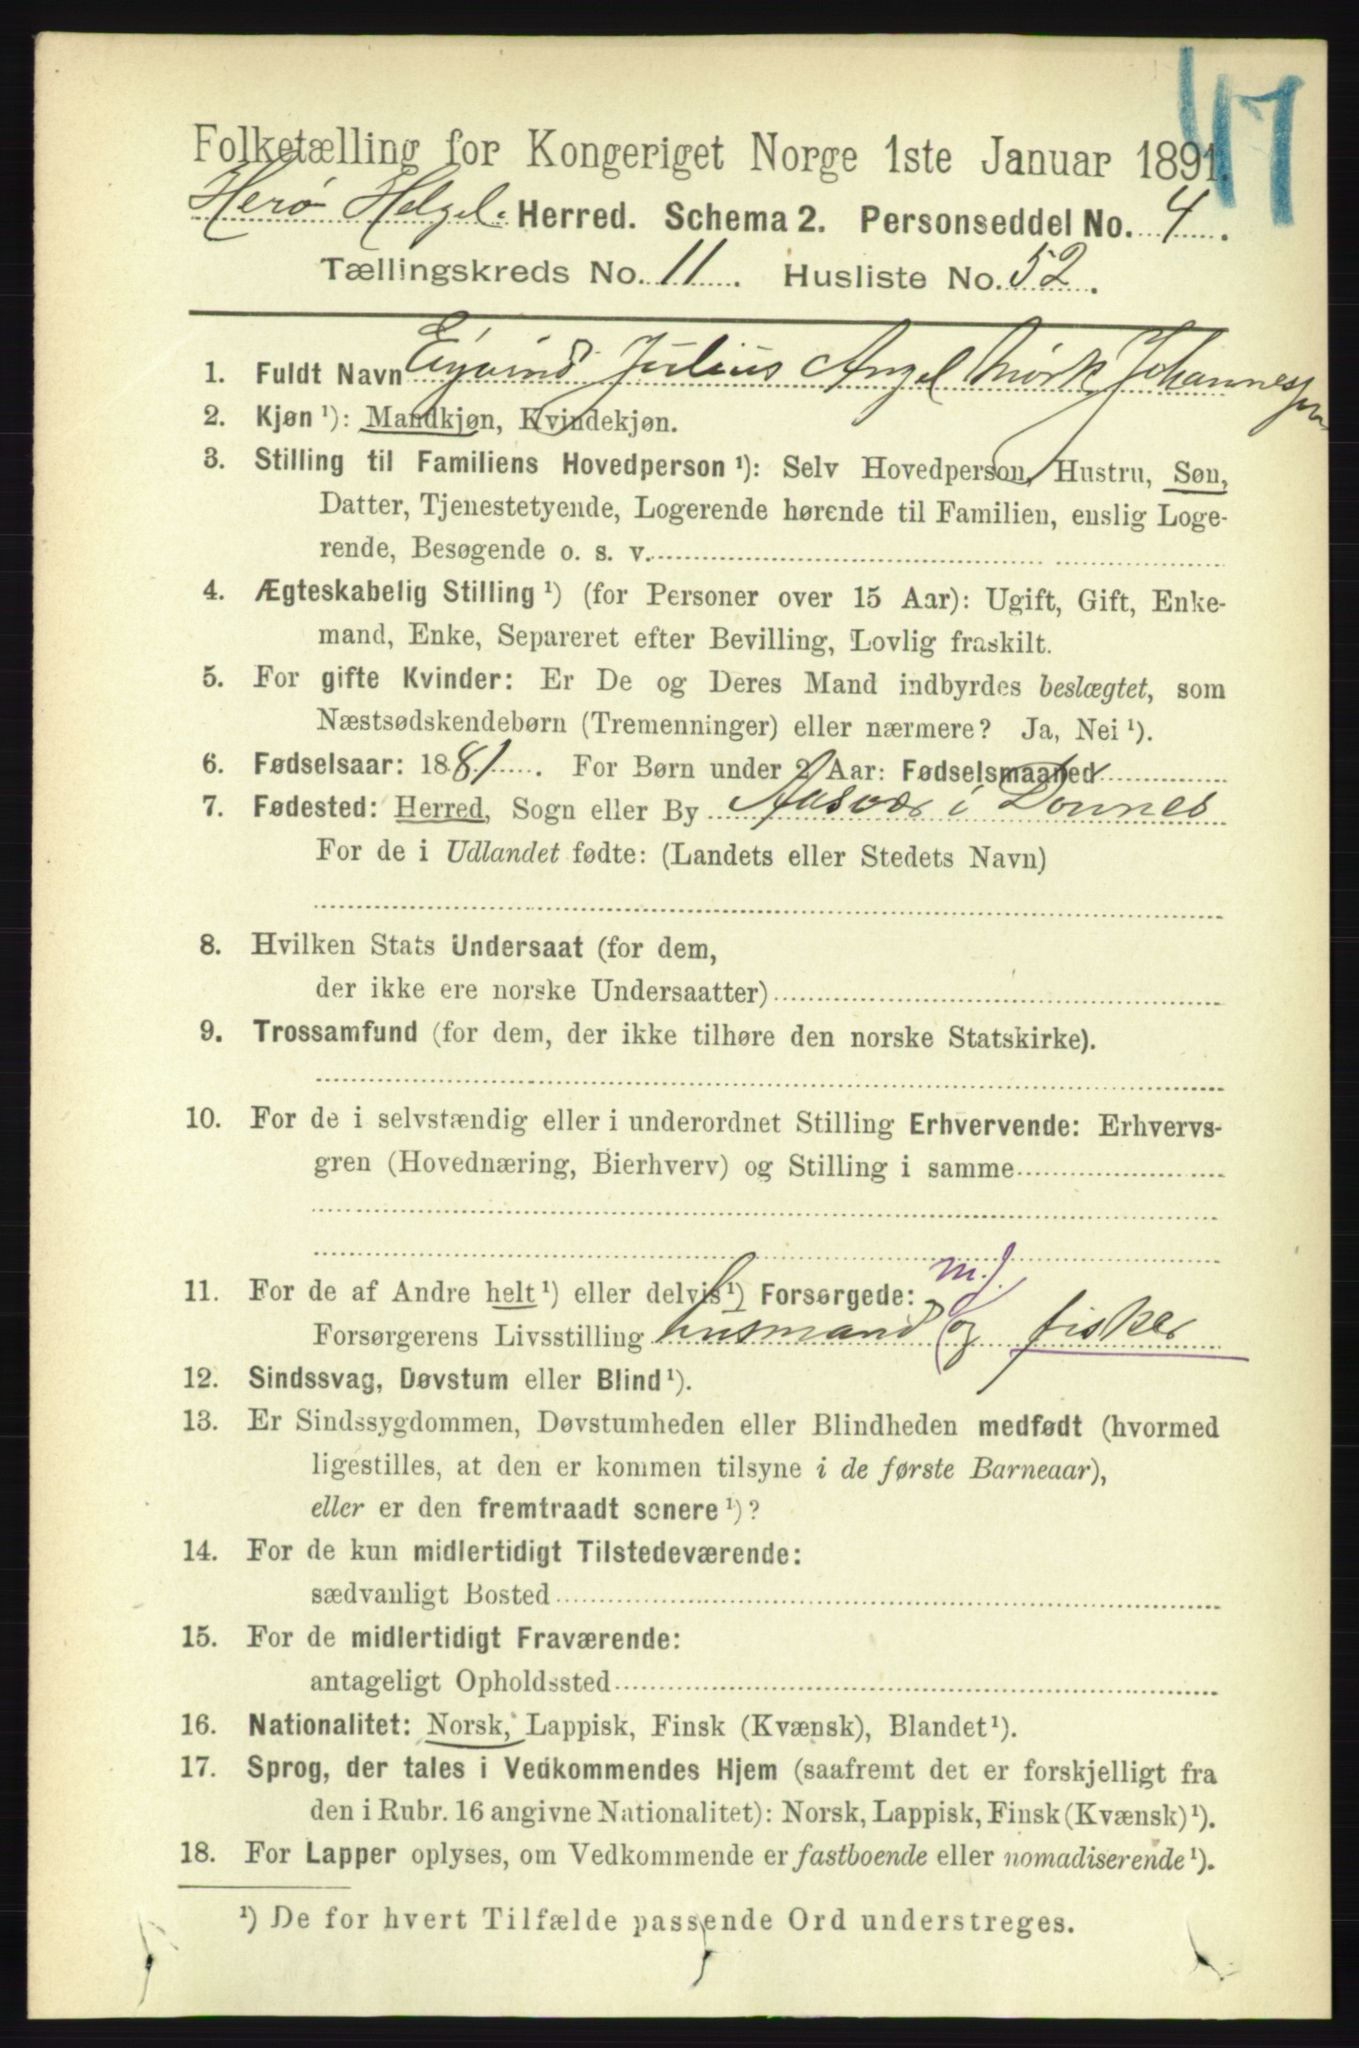 47
Folketælling for Kongeriget Norge 1ste Januar 1891.
Herø Helgel. Herred. Schema 2. Personseddel No. 4.
Tællingskreds No. 11. Husliste No. 52.
1. Fuldt Navn Eijvind Julius Angel Mörk Johannessen
2. Kjøn ¹): Mandkjøn, Kvindekjøn.
3. Stilling til Familiens Hovedperson ¹): Selv Hovedperson, Hustru, Søn,
Datter, Tjenestetyende, Logerende hørende til Familien, enslig Loge-
rende, Besøgende o. s. v.
4. Ægteskabelig Stilling ¹) (for Personer over 15 Aar): Ugift, Gift, Enke-
mand, Enke, Separeret efter Bevilling, Lovlig fraskilt.
5. For gifte Kvinder: Er De og Deres Mand indbyrdes beslægtet, som
Næstsødskendebørn (Tremenninger) eller nærmere? Ja, Nei ¹).
6. Fødselsaar: 1881. For Børn under 2 Aar: Fødselsmaaned
7. Fødested: Herred, Sogn eller By Aasvær i Dønnes
For de i Udlandet fødte: (Landets eller Stedets Navn)
8. Hvilken Stats Undersaat (for dem,
der ikke ere norske Undersaatter)
9. Trossamfund (for dem, der ikke tilhøre den norske Statskirke).
10. For de i selvstændig eller i underordnet Stilling Erhvervende: Erhvervs-
gren (Hovednæring, Bierhverv) og Stilling i samme
11. For de af Andre helt ¹) eller delvis ¹) Forsørgede: m.f.
Forsørgerens Livsstilling husmand og fisker
12. Sindssvag, Døvstum eller Blind ¹).
13. Er Sindssygdommen, Døvstumheden eller Blindheden medfødt (hvormed
ligestilles, at den er kommen tilsyne i de første Barneaar),
eller er den fremtraadt senere ¹)?
14. For de kun midlertidigt Tilstedeværende:
sædvanligt Bosted
15. For de midlertidigt Fraværende:
antageligt Opholdssted
16. Nationalitet: Norsk, Lappisk, Finsk (Kvænsk), Blandet ¹).
17. Sprog, der tales i Vedkommendes Hjem (saafremt det er forskjelligt fra
den i Rubr. 16 angivne Nationalitet): Norsk, Lappisk, Finsk (Kvænsk) ¹).
18. For Lapper oplyses, om Vedkommende er fastboende eller nomadiserende ¹).
¹) De for hvert Tilfælde passende Ord understreges.